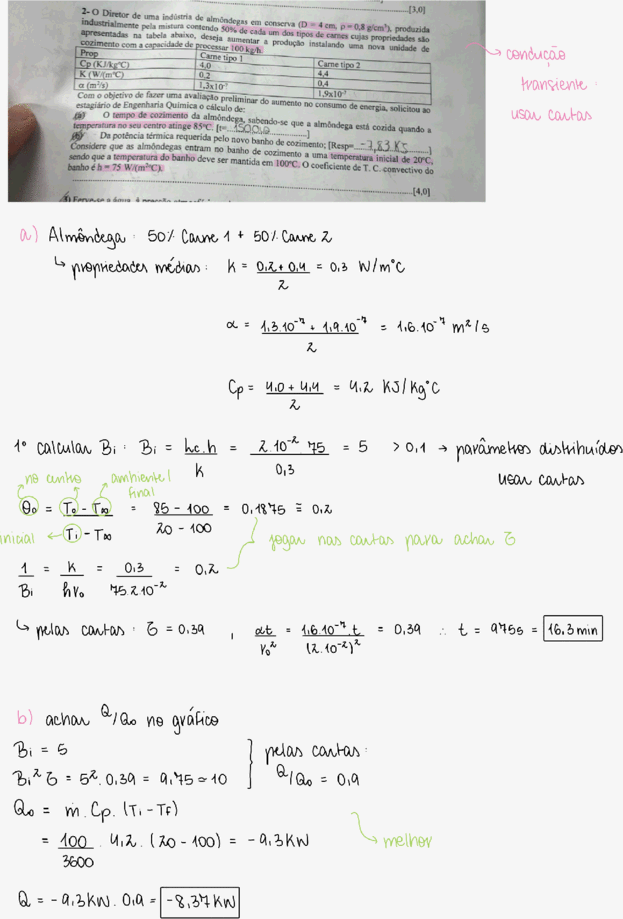 [3,0]
2- O Diretor de uma indústria de almôndegas em conserva (D = 4 cm, ρ = 0,8 g/cm³), produzida
industrialmente pela mistura contendo 50% de cada um dos tipos de carnes cujas propriedades são
apresentadas na tabela abaixo, deseja aumentar a produção instalando uma nova unidade de
cozimento com a capacidade de processar 100 kg/h.
Prop Carne tipo 1 Carne tipo 2
Cp (KJ/kgºC) 4,0 4,4
K (W/(mºC) 0,2 0,4
α (m²/s) 1,3x10⁻⁷ 1,9x10⁻⁷
Com o objetivo de fazer uma avaliação preliminar do aumento no consumo de energia, solicitou ao
estagiário de Engenharia Química o cálculo de:
(a) O tempo de cozimento da almôndega, sabendo-se que a almôndega está cozida quando a
temperatura no seu centro atinge 85ºC. [t=
(b) Da potência térmica requerida pelo novo banho de cozimento; [Resp= -7,83 KJ
Considere que as almôndegas entram no banho de cozimento a uma temperatura inicial de 20ºC,
sendo que a temperatura do banho deve ser mantida em 100ºC. O coeficiente de T. C. convectivo do
banho é h = 75 W/(m²ºC).
[4,0]
condução
transiente:
usar cartas
a) Almôndega: 50% Carne 1 + 50% Carne 2
↳ propriedades médias: K = 0,2 + 0,4 / 2 = 0,3 W/m°C
α = 1,3.10⁻⁷ + 1,9.10⁻⁷ / 2 = 1,6.10⁻⁷ m²/s
Cp = 4,0 + 4,4 / 2 = 4,2 KJ/Kg°C
1º calcular Bi: Bi = Lc.h / K = 2.10⁻².75 / 0,3 = 5 > 0,1 → parâmetros distribuídos
usar cartas
no centro
ambiente/
final
θ₀ = T₀ - T∞ / Ti - T∞ = 85 - 100 / 20 - 100 = 0,1875 ≅ 0,2
inicial
jogar nas cartas para achar τ
1 / Bi = K / hr₀ = 0,3 / 75.2.10⁻² = 0,2
↳ pelas cartas: τ = 0,39 , αt / r₀² = 1,6.10⁻⁷.t / (2.10⁻²)² = 0,39 ∴ t = 975s = 16,3 min
b) achar Q/Q₀ no gráfico
Bi = 5
Bi² τ = 5². 0,39 = 9,75 ≃ 10
pelas cartas:
Q/Q₀ = 0,9
Q₀ = ṁ. Cp. (Ti - Tf)
= 100 / 3600 . 4,2 . (20 - 100) = - 9,3 KW
melhor
Q = - 9,3 KW . 0,9 = -8,37 KW